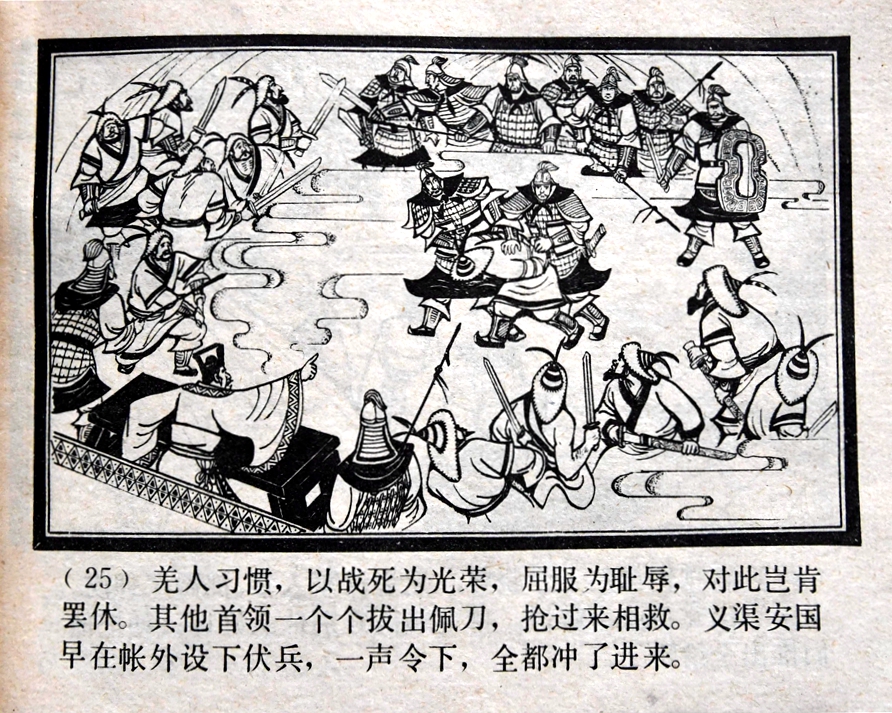 （25） 羌人习惯，以战死为光荣，屈服为耻辱，对此岂肯
罢休。其他首领一个个拔出佩刀，抢过来相救。义渠安国
早在帐外设下伏兵，一声令下，全都冲了进来。